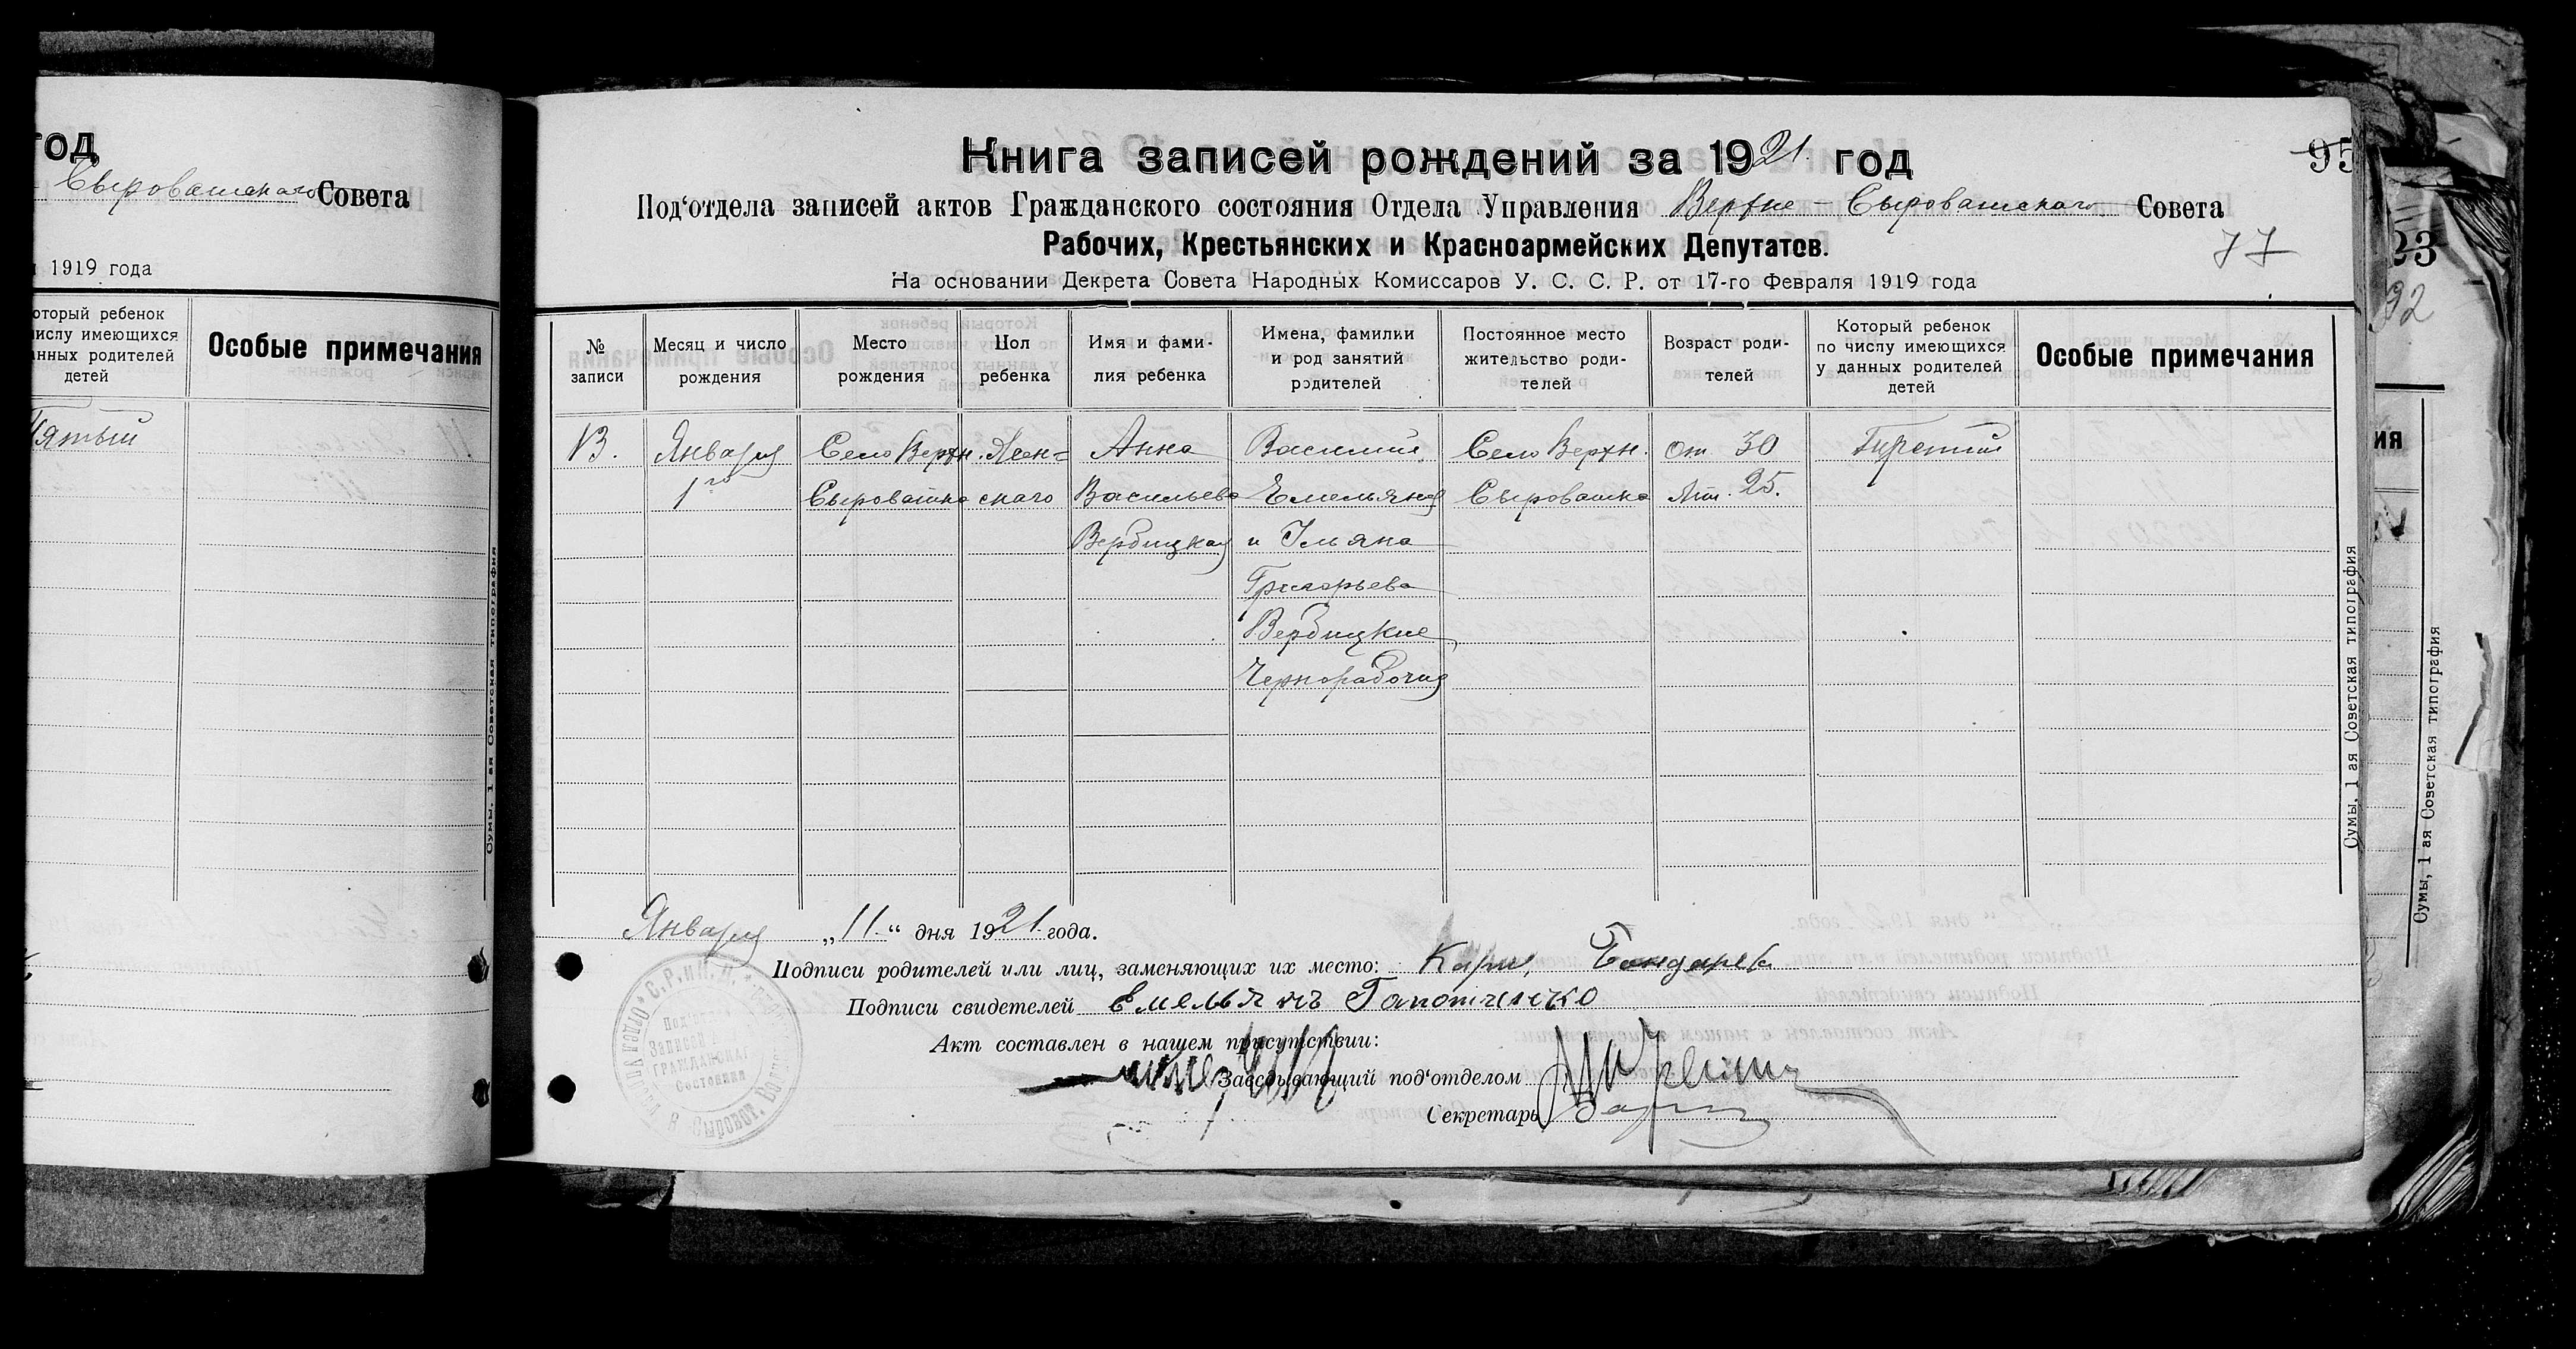 год
Сыроватскаго Совета
1919 года
оторый ребенок
числу имеющихся
анных родителей
детей
Особые примечания
Пятый
Сумы, 1 ая Советская типография
95
Книга записей рождений за 1921 год
Под‘отдела записей актов Гражданского состояния Отдела Управления Верхне-Сыроватскаго Совета
Рабочих, Крестьянских и Красноармейских Депутатов.
77
На основании Декрета Совета Народных Комиссаров У. С. С. Р. от 17-го Февраля 1919 года
№ записи
Месяц и число рождения
Место рождения
Пол ребенка
Имя и фами- лия ребенка
Имена, фамилии и род занятий родителей
Постоянное место жительство роди- телей
Возраст роди- телей
Который ребенок по числу имеющихся у данных родителей детей
Особые примечания
13. Января Село Верхн. Жен= Анна Василий Село Верхн. От. 30 Третий
1го Сыроватка скаго Васильева Емельянов Сыроватка Мат. 25.
Вербицкая и Ульяна
Григорьева
Вербицкие
Чернорабочия
Сумы, 1 ая Советская типография
Января „11“ дня 1921 года.
Подписи родителей или лиц, заменяющих их место: Карп Бондарев
Подписи свидетелей Емельянъ Гапотченко
Акт составлен в нашем присутствии:
Заведывающий под‘отделом
Секретарь
Записей
Гражданскаг
Состояния
23
92
ия
Сумы, 1 ая Советская типография